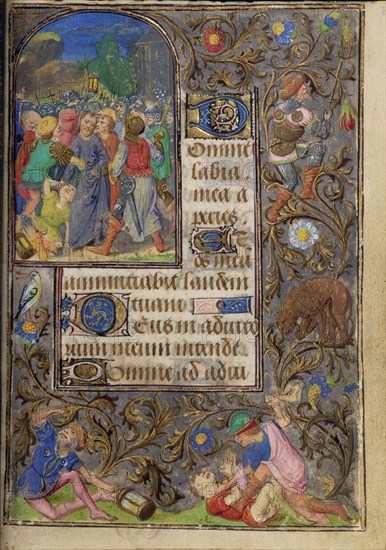 Domine
labia
mea a
peries
Et
os meu
annunciabit laudem
tuam
Deus in adiuto
rium meum intende
Domine ad adiu